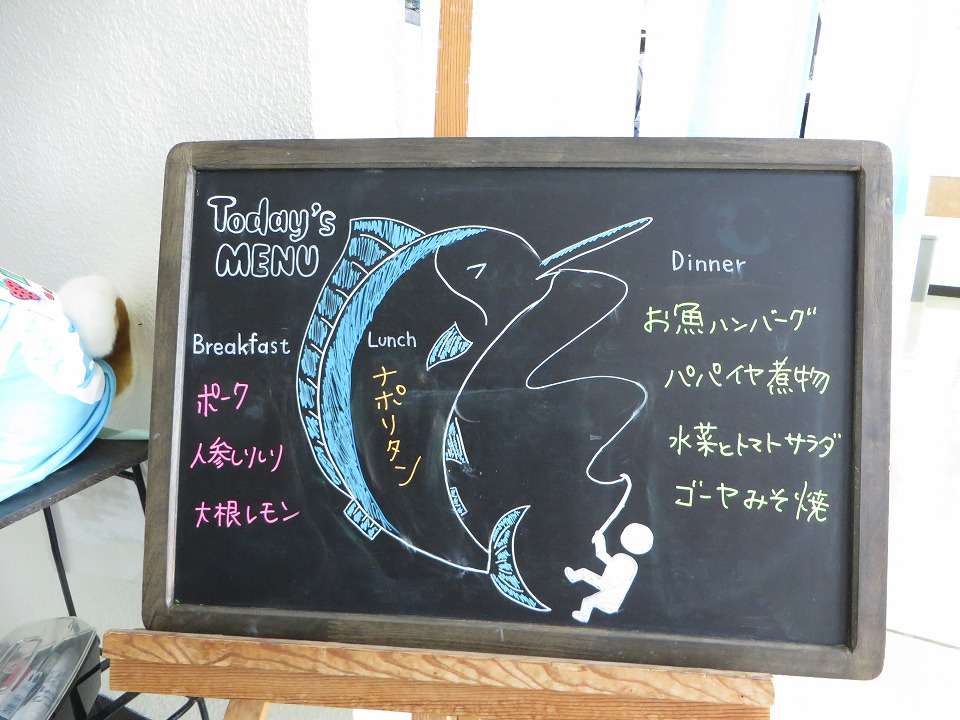 Today's
MENU
Breakfast
ポーク
人参しりしり
大根レモン
Lunch
ナポリタン
Dinner
お魚ハンバーグ
パパイヤ煮物
水菜とトマトサラダ
ゴーヤみそ焼